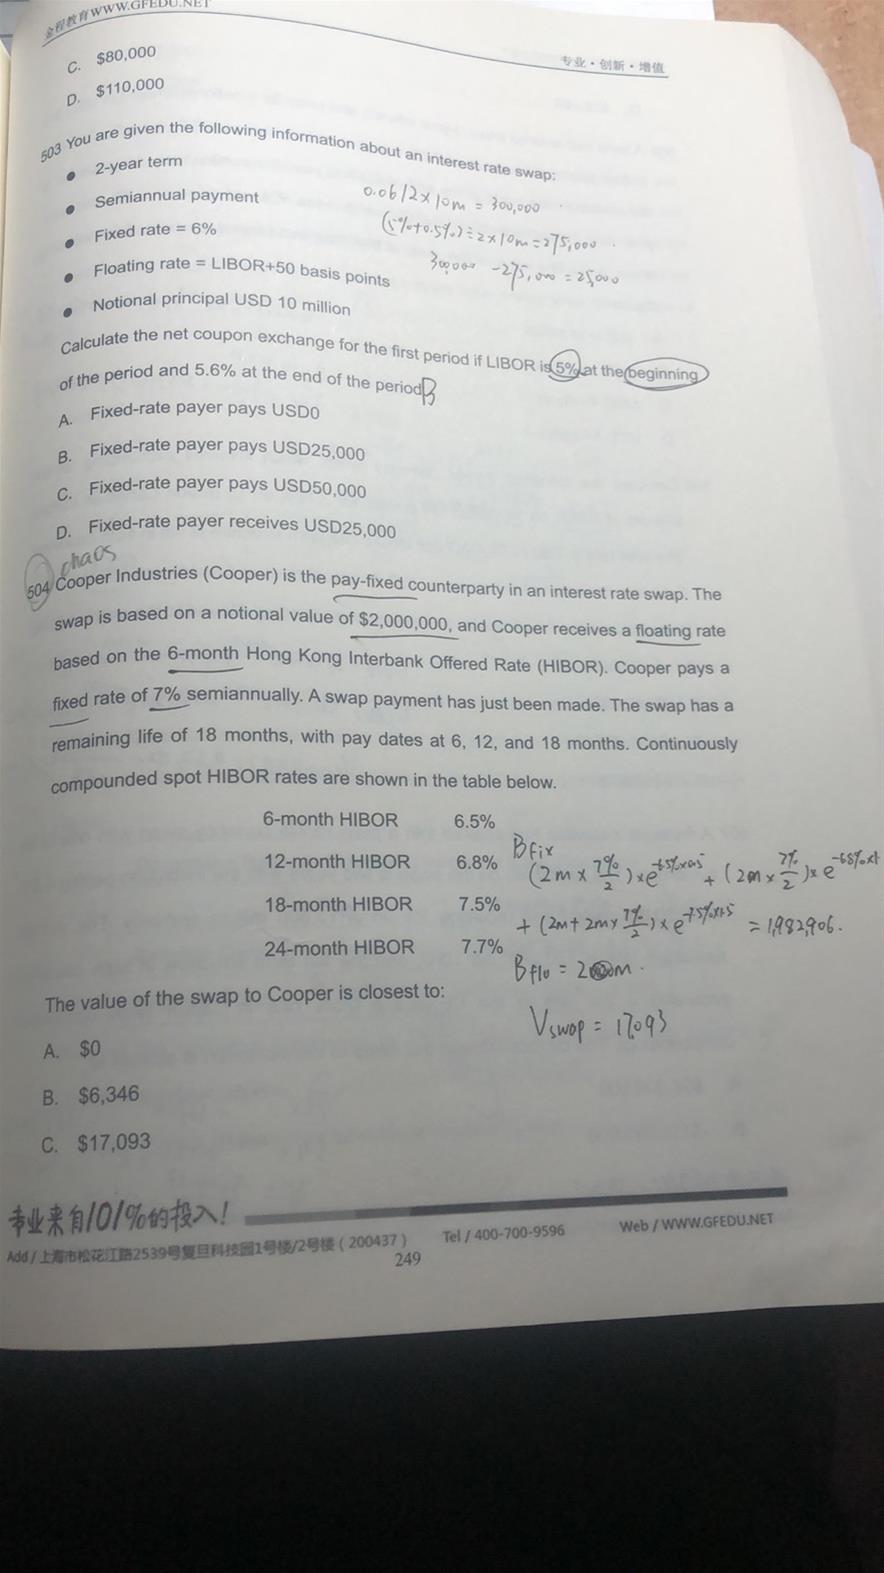 金程教育WWW.GFEDU.NET
专业·创新·增值
C. $80,000
D. $110,000
503 You are given the following information about an interest rate swap:
● 2-year term
● Semiannual payment
● Fixed rate = 6%
● Floating rate = LIBOR+50 basis points
● Notional principal USD 10 million
0.06/2×10m = 300,000
(5%+0.5%)÷2×10m=275,000
300,000 -275,000 = 25,000
Calculate the net coupon exchange for the first period if LIBOR is 5% at the beginning
of the period and 5.6% at the end of the period B
A. Fixed-rate payer pays USD0
B. Fixed-rate payer pays USD25,000
C. Fixed-rate payer pays USD50,000
D. Fixed-rate payer receives USD25,000
chaos
504 Cooper Industries (Cooper) is the pay-fixed counterparty in an interest rate swap. The
swap is based on a notional value of $2,000,000, and Cooper receives a floating rate
based on the 6-month Hong Kong Interbank Offered Rate (HIBOR). Cooper pays a
fixed rate of 7% semiannually. A swap payment has just been made. The swap has a
remaining life of 18 months, with pay dates at 6, 12, and 18 months. Continuously
compounded spot HIBOR rates are shown in the table below.
6-month HIBOR 6.5%
12-month HIBOR 6.8%
18-month HIBOR 7.5%
24-month HIBOR 7.7%
Bfix
(2m × 7%/2)×e^-6.5%×0.5 + (2m × 7%/2)×e^-6.8%×1
+ (2m+2m×7%/2)×e^-7.5%×1.5 = 1,982,906.
Bflo = 2m.
Vswap = 17,093
The value of the swap to Cooper is closest to:
A. $0
B. $6,346
C. $17,093
专业来自101%的投入!
Add / 上海市松花江路2539号复旦科技园1号楼/2号楼(200437) Tel / 400-700-9596 Web / WWW.GFEDU.NET
249